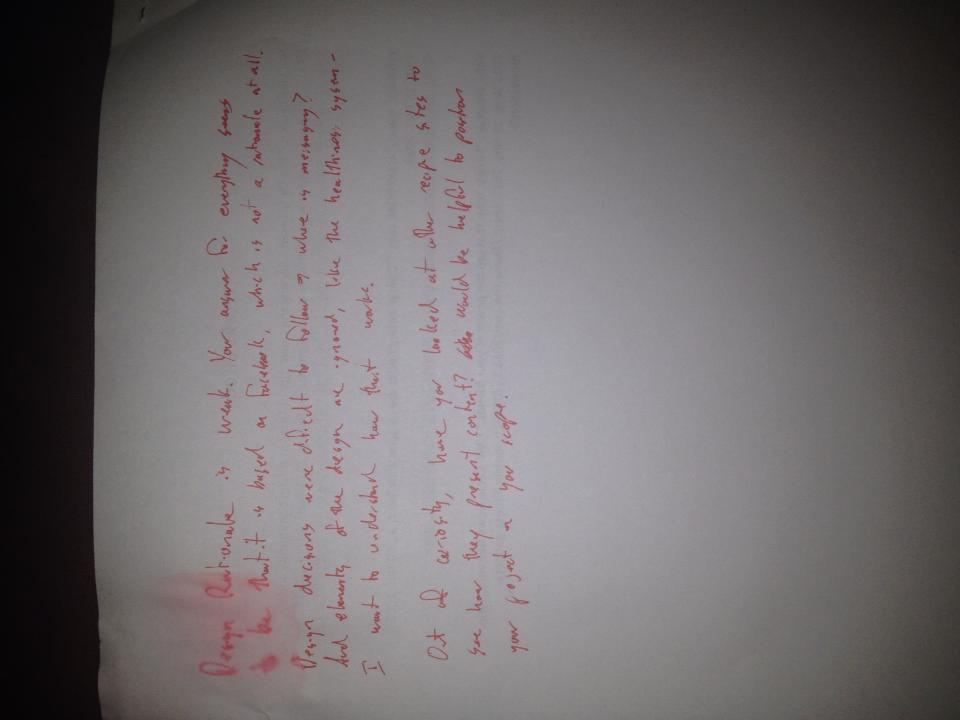 Design Rationale is weak. Your answer for everything seems
to be that it is based on facebook, which is not a rationale at all.
Design decisions were dificult to follow → where is messaging?
And elements of the design are ignored, like the healthiness system -
I want to understand how that works.
Out of curiosity, have you looked at other recipe sites to
see how they present content? would be helpful to position
your project or your scope.